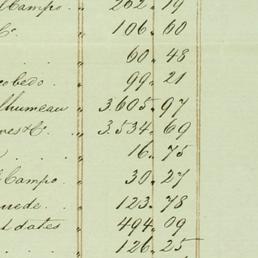 Campo. " 202. 19
Co. " 106. 60
. " 60. 48
cobedo. " 99. 21
lhumeau " 3.605. 97
res & Co. " 3.534. 69
. " 16. 75
Campo. " 30. 27
uede. " 123. 78
t dates " 494. 09
" 126. 25